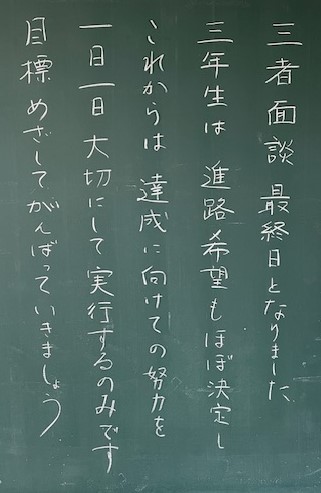 三者面談 最終日となりました、
三年生は 進路希望もほぼ決定し
これからは 達成に向けての努力を
一日一日 大切にして実行するのみです
目標めざしてがんばっていきましょう